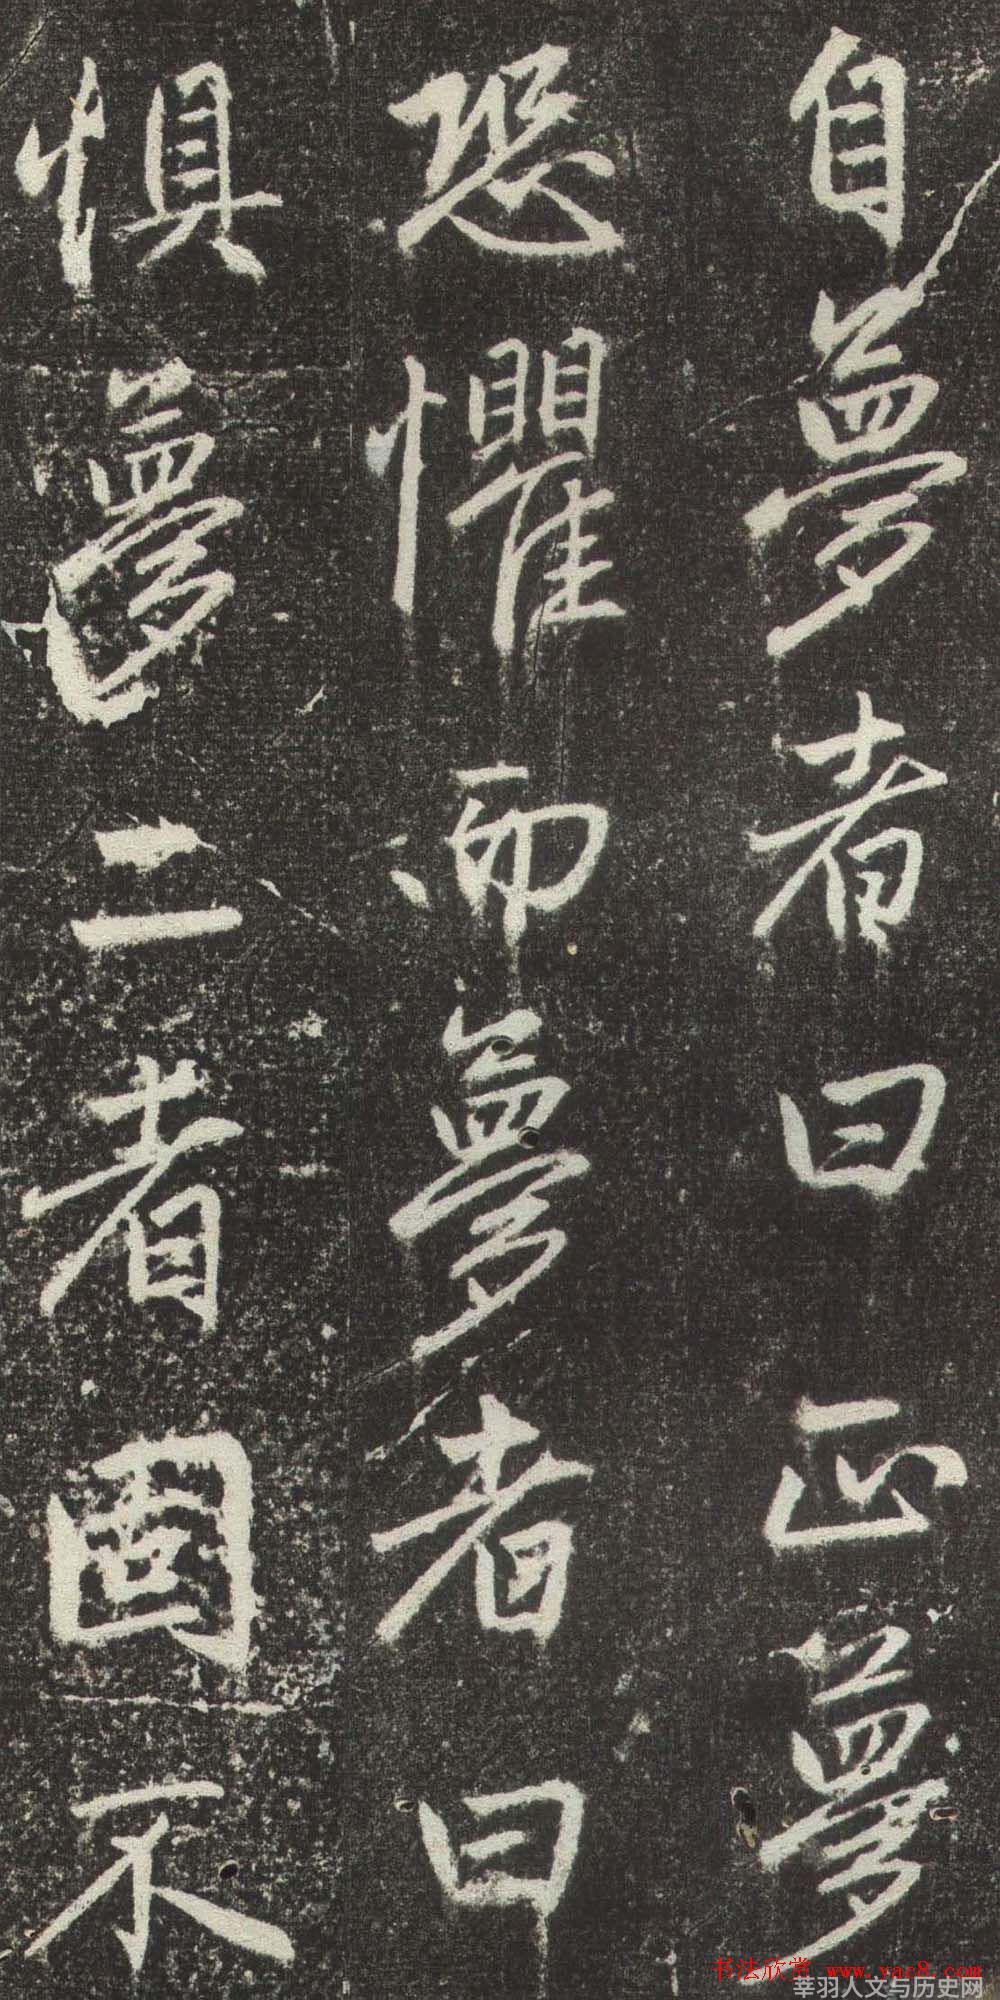 自夢者曰正夢
恐懼而夢者曰
惧夢二者固不
书法欣赏 www.yac8.com
莘羽人文与历史网